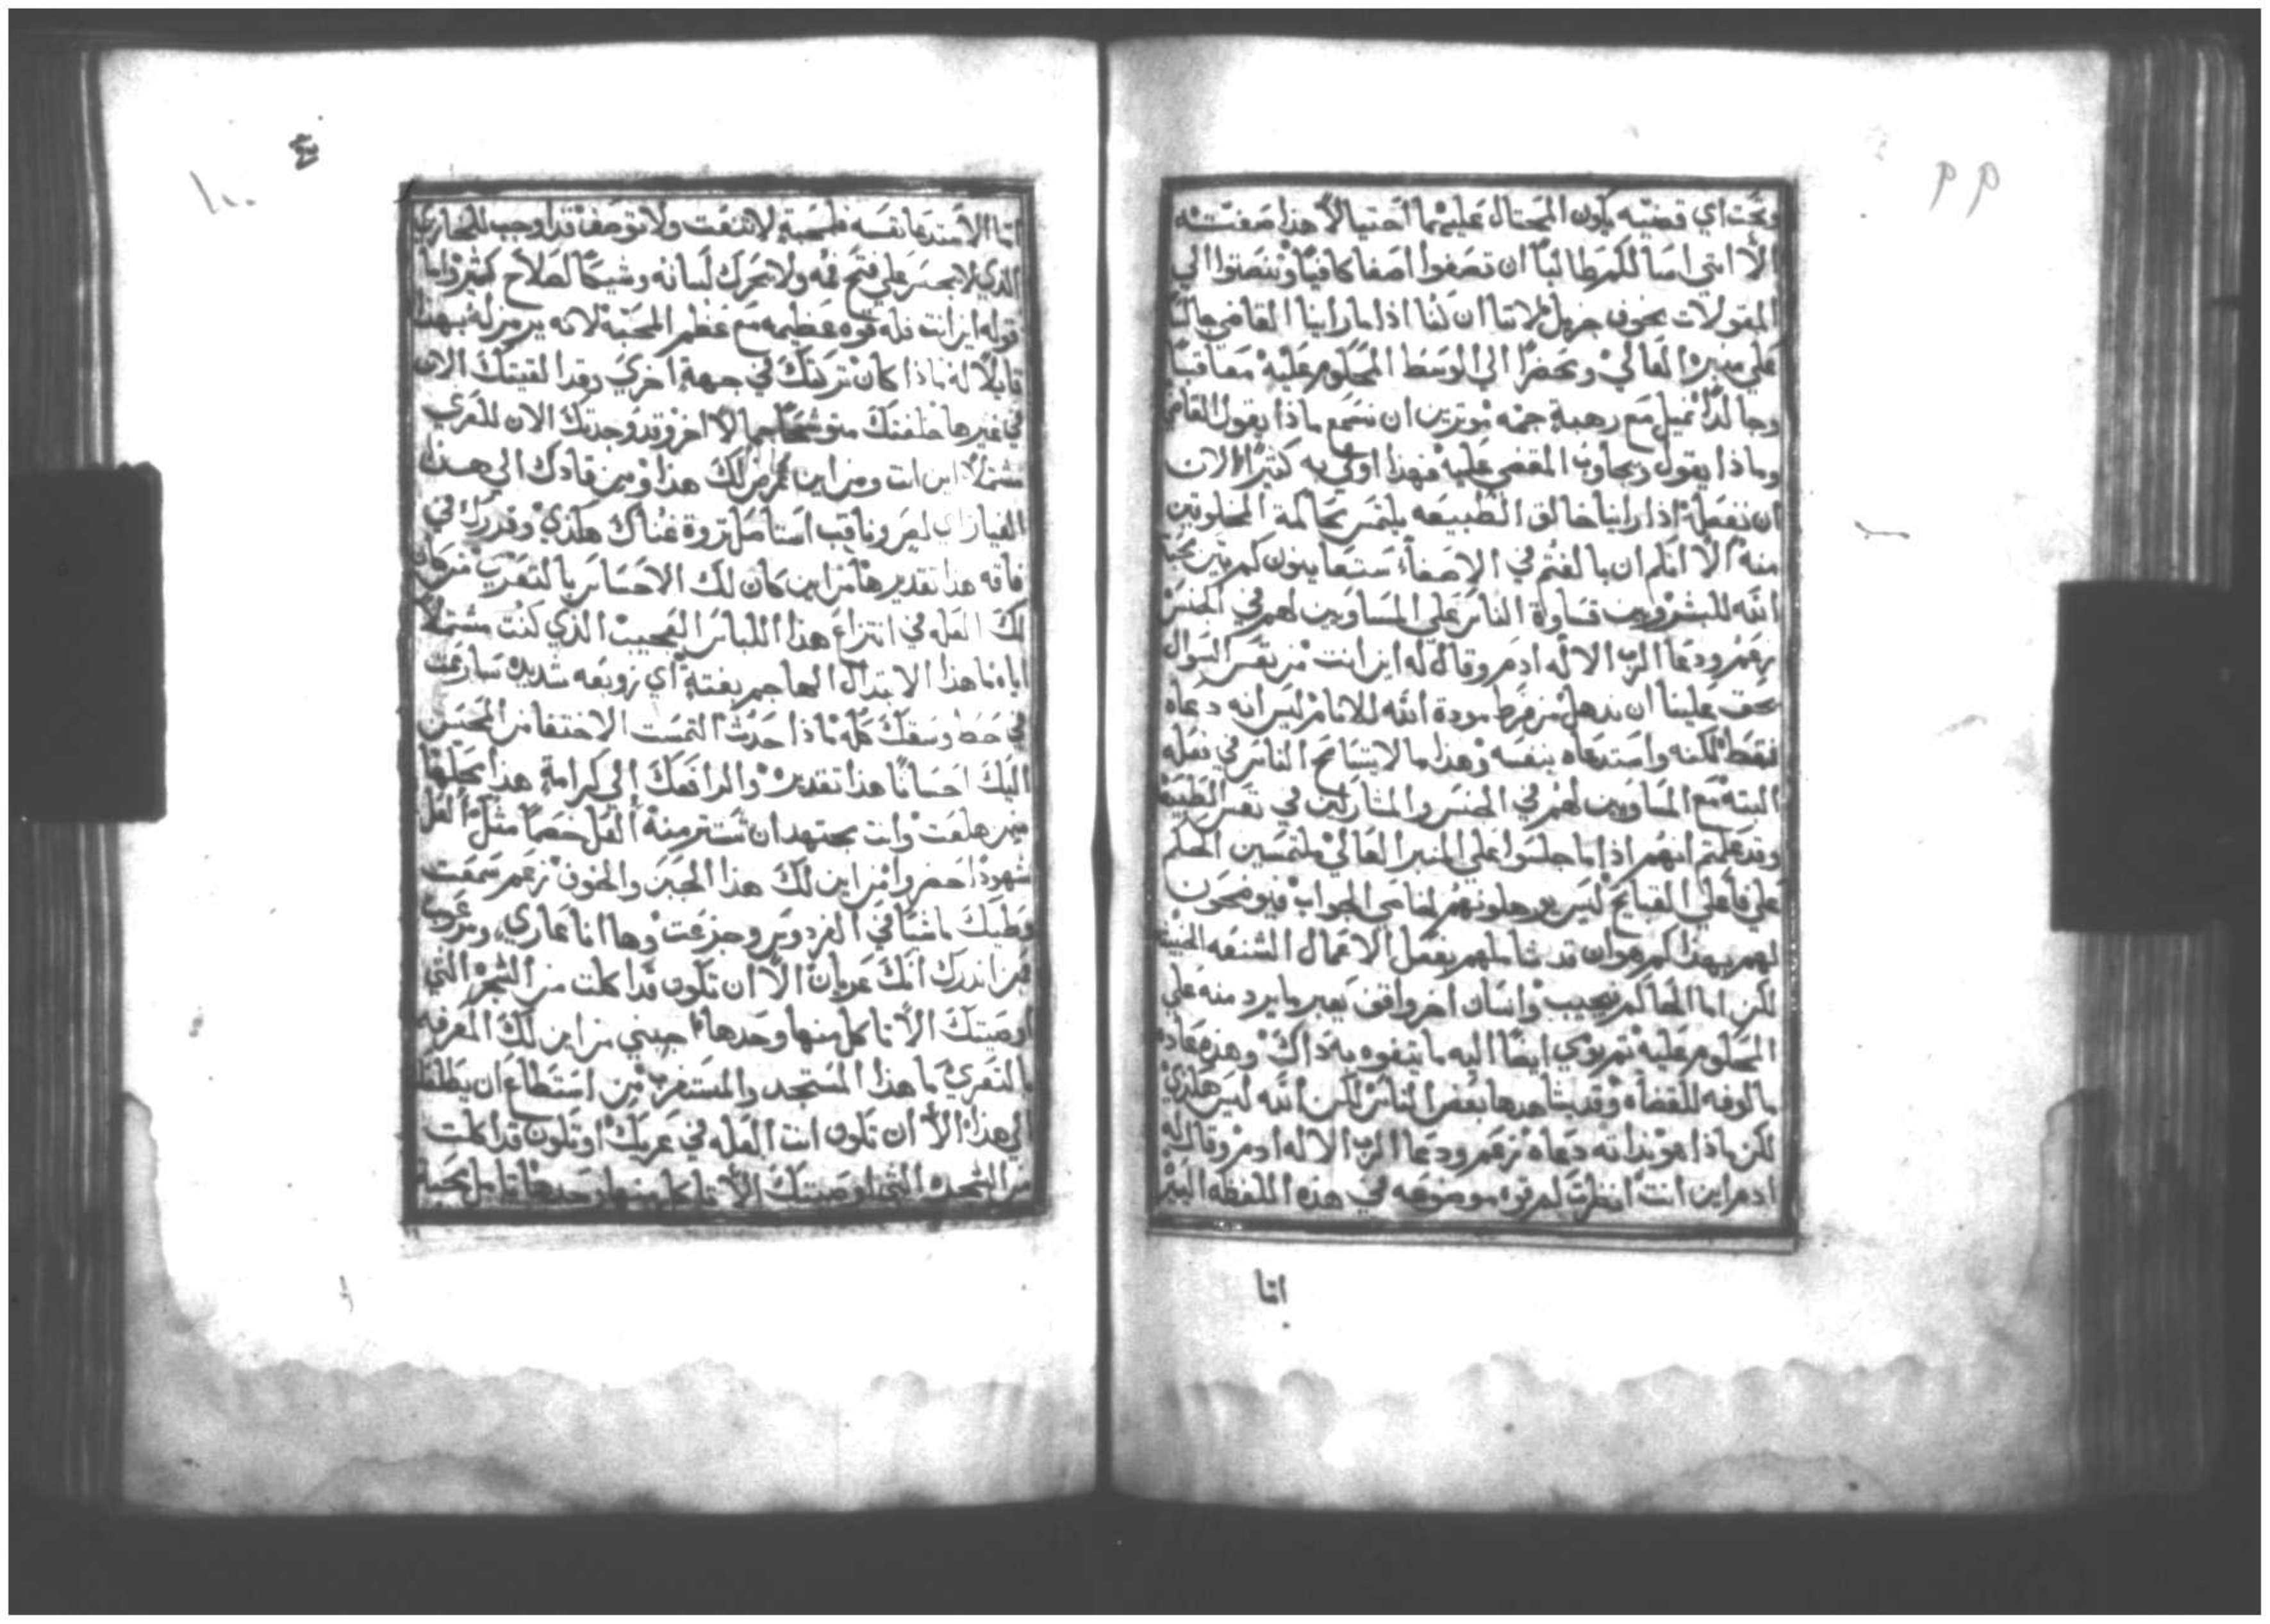 ٩٩
وتحت اي قضيه يكون المحتال عليهما احتيالاً هذا صفته
الا انني اسالكم طالباً ان تصغوا اصغا كافياً وتنصتوا الي
المقولات بخوف جزيل لاننا ان كنا اذا ما راينا القاضي جالساً
علي منبره العالي ومحضراً الي الوسط المحكوم عليه معاقباً
وجالداً نميل مع رهبة جمه موثرين ان نسمع ماذا يقول القاضي
وماذا يقول ويجاوب المقضي عليه فهذا اولي به كثيراً الان
ان نفعله اذا راينا خالق الطبيعه يلتمس محاكمة المخلوقين
منه الا انكم ان بالغتم في الاصغاء ستعاينون كم بين محبة
الله للبشر وبين قساوة الناس علي المساويين لهم في الجنس
زعم ودعا الرب الاله ادم وقال له اين انت من نفس السوال
يحق علينا ان نذهل من فرط مودة الله للانام ليس انه دعاه
فقط لكنه واستدعاه بنفسه وهذا ما لا يتسامح الناس في فعله
البته مع المساويين لهم في الجنس والمشاركين في نفس الطبيعة
وقد علمتم انهم اذا ما جلسوا علي المنبر العالي ملتمسين الحكم
علي فاعلي القبايح ليس يوهلونهم لمناجي الجواب فيوضحون
لهم بهذا كم هوان قد شاملهم بفعل الاعمال الشنعه الخبيثه
لكن اما الحاكم فيجيب وانسان اخر واقف يعبر ما يرد منه علي
المحكوم عليه ثم يودي ايضاً اليه ما يتفوه به ذاك وهذه عادة
مالوفه للقضاه وقد يشاهدها بعض الناس لكن الله ليس هكذي
لكن ماذا هو بذاته دعاه زعم ودعا الرب الاله ادم وقال له
ادم اين انت انظر كم قوه موضوعه في هذه اللفظه اليسيره
اما
١٠٠
اما الاستدعا نفسه فلمحبة لا تنعت ولا توصف قد اوجب للمخازي
الذي لا يجسر علي فتح فمه ولا يحرك لسانه وشيكاً لصلاح كثير واما
قوله اين انت فله قوه عظيمه مع عظم المحبه لانه يرمز له بهذا
قايلاً له ماذا كان تركتك في جهة اخري وقد القيتك الان
في غيرها خلفتك متوشحاً بجمالاً اخر وقد وجدتك الان للتعري
مشتملاً اين انت ومن اين عرض لك هذا ومن قادك الي هذا
الغيار اي لص وناقب استاصل ثروة غناك هكذي وقدرك في
فاقه هذا تقديرها من اين كان لك الاحساس بالتعري من كان
لك العله في انتزاع هذا اللباس العجيب الذي كنت مشتملاً
اياه ما هذا الابتدال الهاجم بغتة اي زوبعه شديده سارعت
في حط وسقك كله ماذا حدث التمست الاختفا من المحسن
اليك احساناً هذا تقديره والرافعك الي كرامة هذا محلها
ممن هلعت وانت مجتهد ان تستتر منه العل خصماً مثل العل
شهوداً حضروا من اين لك هذا الجبن والخوف زعم سمعت
وطيك ماشياً في الفردوس وجزعت وها انا عاري ومرعوب
فمن انذرك انك عريان الا ان تكون قد اكلت من الشجر التي
اوصيتك الا تاكل منها وحدها اجبني من اين لك المعرفه
بالتعري ما هذا المستجد والمستغرب من استطاع ان يطلعك
الي هذا الا ان تكون انت العله في عريك او تكون قد اكلت
من الشجره التي اوصيتك الا تاكل منها وحدها تامل محبة